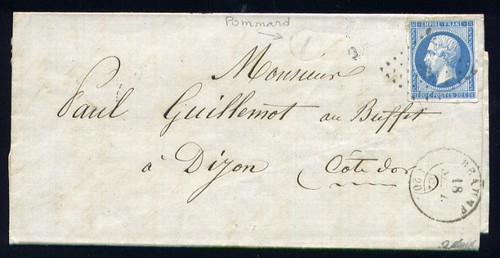 Pommard
EMPIRE FRANC
20 C. POSTES 20 C.
Monsieur
Paul Guillemot au Buffet
à Dijon Côte dor
BEAUNE
18
(20)